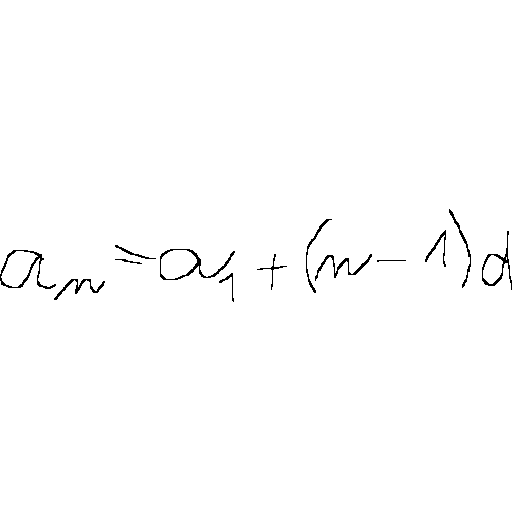 aₙ = a₁ + (n - 1)d